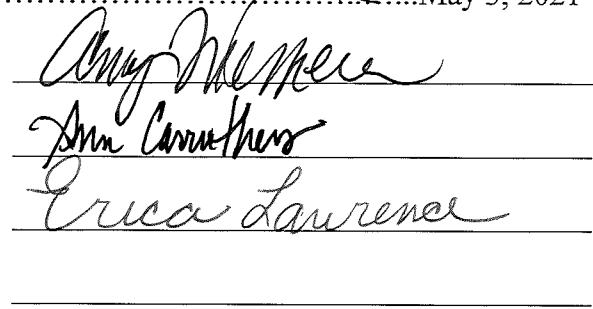 May 3, 2021
Amy
Ann Carruthers
Erica Lawrence